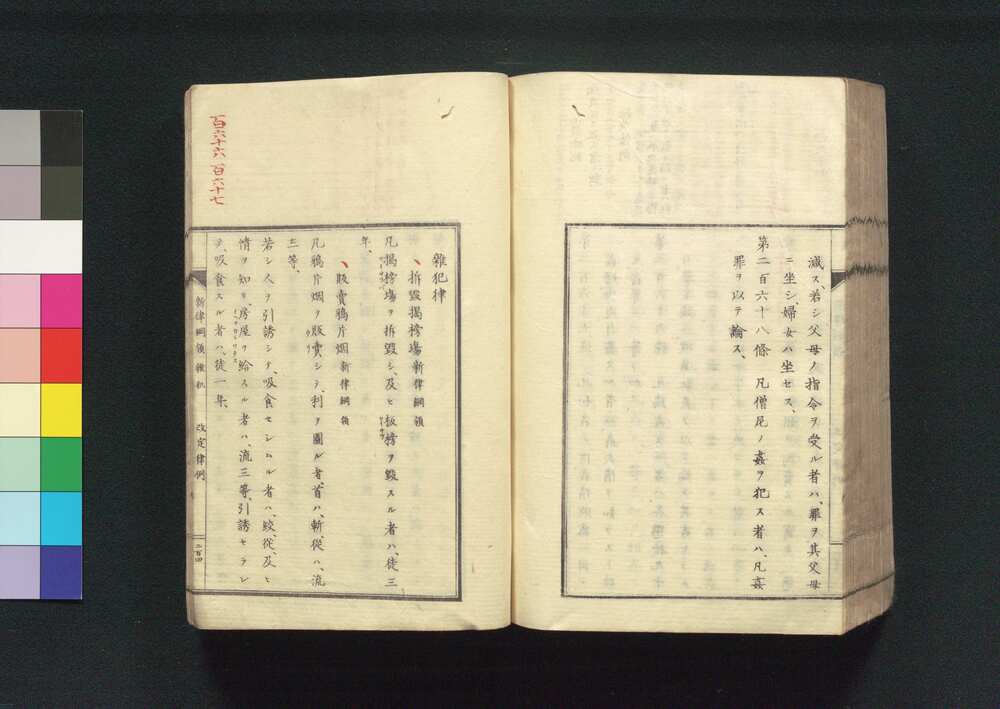 減ス、若シ父母ノ指令ヲ受ル者ハ、罪ヲ其父母
ニ坐シ、婦女ハ坐セス、
第二百六十八條　凡僧尼ノ姦ヲ犯ス者ハ、凡姦
罪ヲ以テ論ス、
百六十六 百六十七
雜犯律
拆毀揭榜場 新律綱領
凡揭榜場ヲ拆毀シ、及ヒ板榜ヲ毀スル者ハ、徒三
年、
販賣鴉片烟 新律綱領
凡鴉片烟ヲ販賣シテ、利ヲ圖ル者、首ハ、斬、從ハ、流
三等、
若シ人ヲ引誘シテ、吸食セシムル者ハ、絞、從、及ヒ
情ヲ知リ、房屋ヲ給スル者ハ、流三等、引誘セラレ
テ、吸食スル者ハ、徒一年、
新律綱領 雜犯 改定律例
二百四